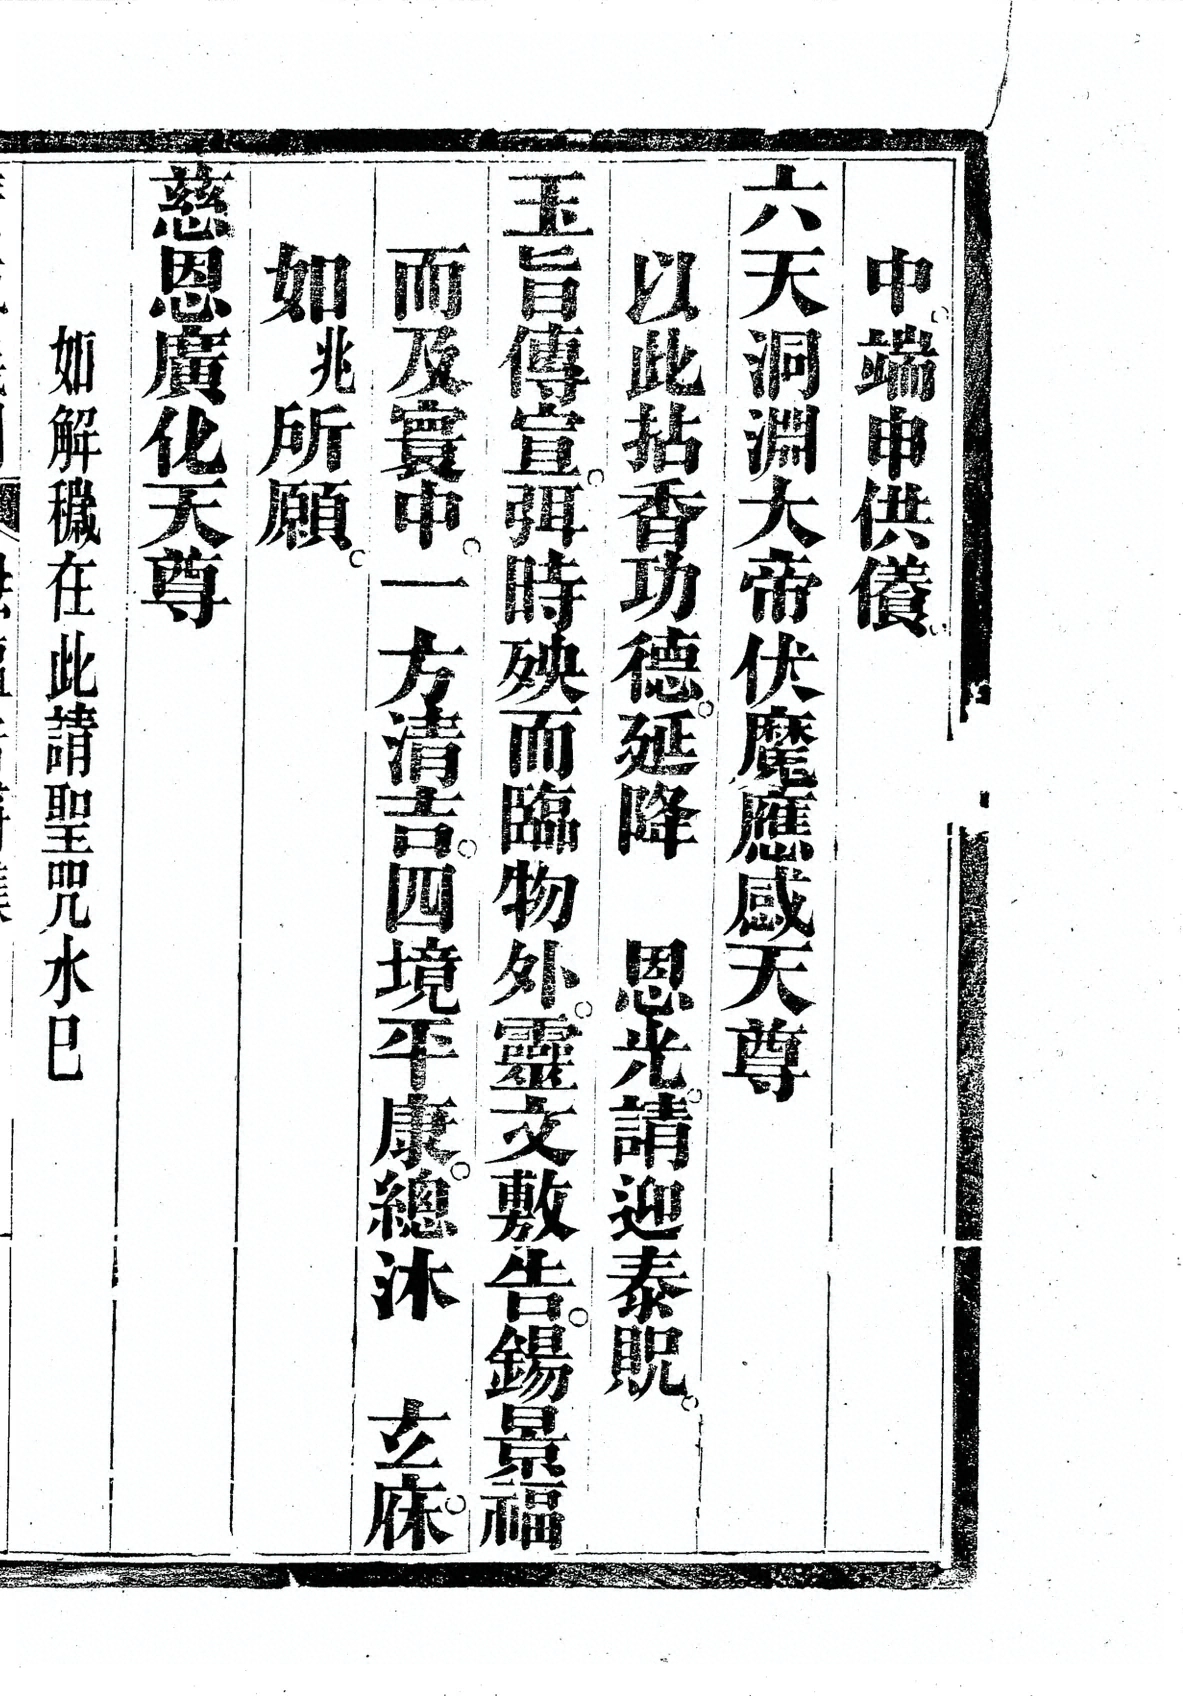 中。端申供養。
六天洞淵大帝伏魔應感天尊
以此拈香功德。延降　恩光。請迎泰貺。
玉旨傳宣。弭時殃而臨物外。靈文敷告。錫景福
而及寰中。一方清吉。四境平康。總沐　玄庥。
如兆所願。
慈恩廣化天尊
如解穢在此請聖咒水巳